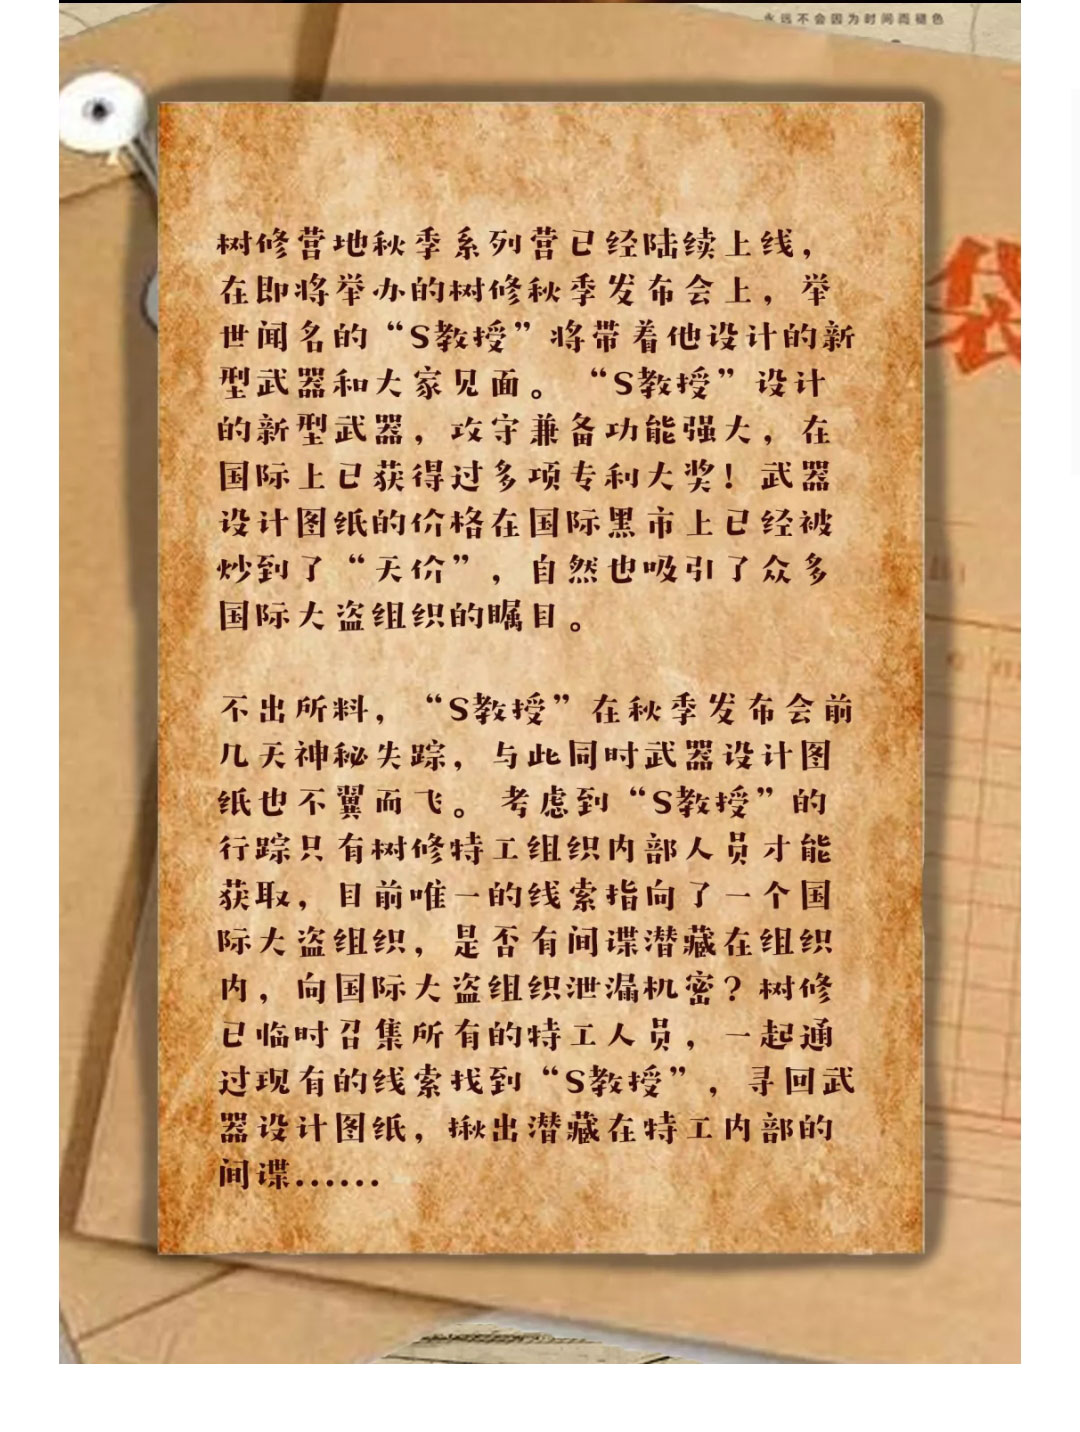 永远不会因为时间而褪色
树修营地秋季系列营已经陆续上线，
在即将举办的树修秋季发布会上，举
世闻名的“S教授”将带着他设计的新
型武器和大家见面。“S教授”设计
的新型武器，攻守兼备功能强大，在
国际上已获得过多项专利大奖！武器
设计图纸的价格在国际黑市上已经被
炒到了“天价”，自然也吸引了众多
国际大盗组织的瞩目。
不出所料，“S教授”在秋季发布会前
几天神秘失踪，与此同时武器设计图
纸也不翼而飞。考虑到“S教授”的
行踪只有树修特工组织内部人员才能
获取，目前唯一的线索指向了一个国
际大盗组织，是否有间谍潜藏在组织
内，向国际大盗组织泄漏机密？树修
已临时召集所有的特工人员，一起通
过现有的线索找到“S教授”，寻回武
器设计图纸，揪出潜藏在特工内部的
间谍......
袋